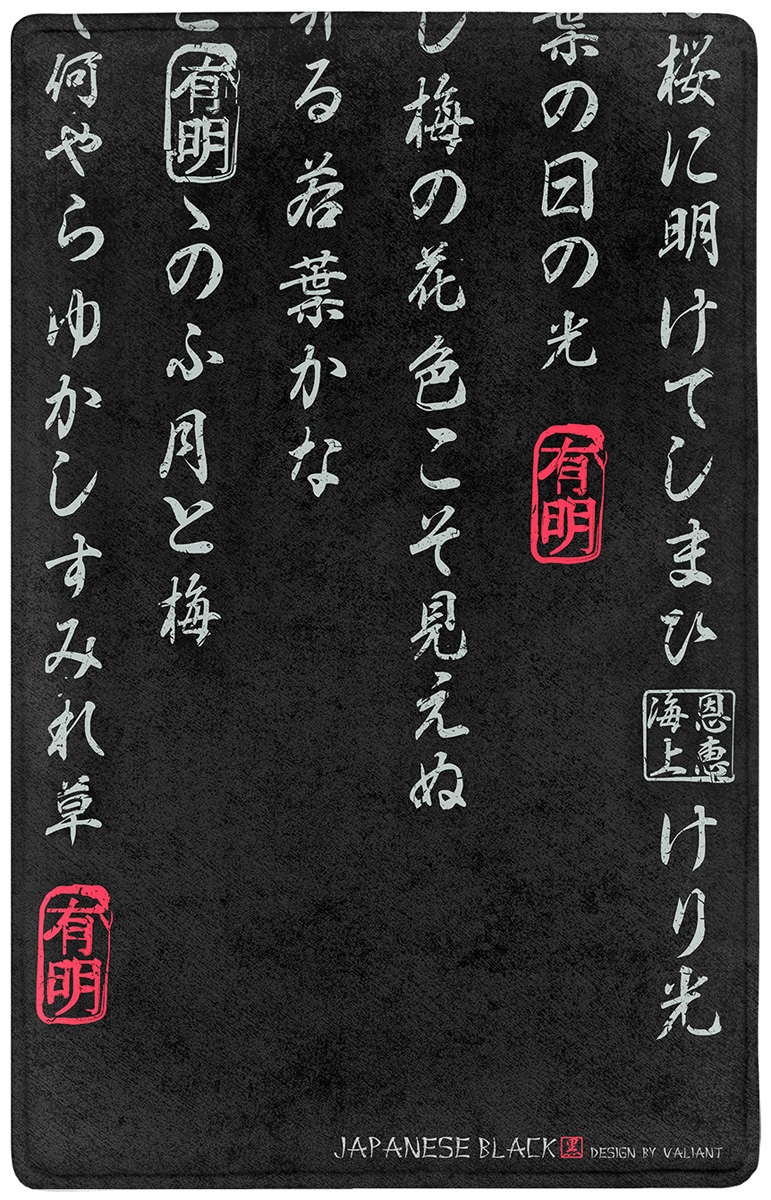 桜に明けてしまひ
恩恵
海上
けり光
葉の日の光
有明
し梅の花色こそ見えぬ
る若葉かな
有明
ゝのふ月と梅
何やらゆかしすみれ草
有明
JAPANESE BLACK 黒 DESIGN BY VALIANT